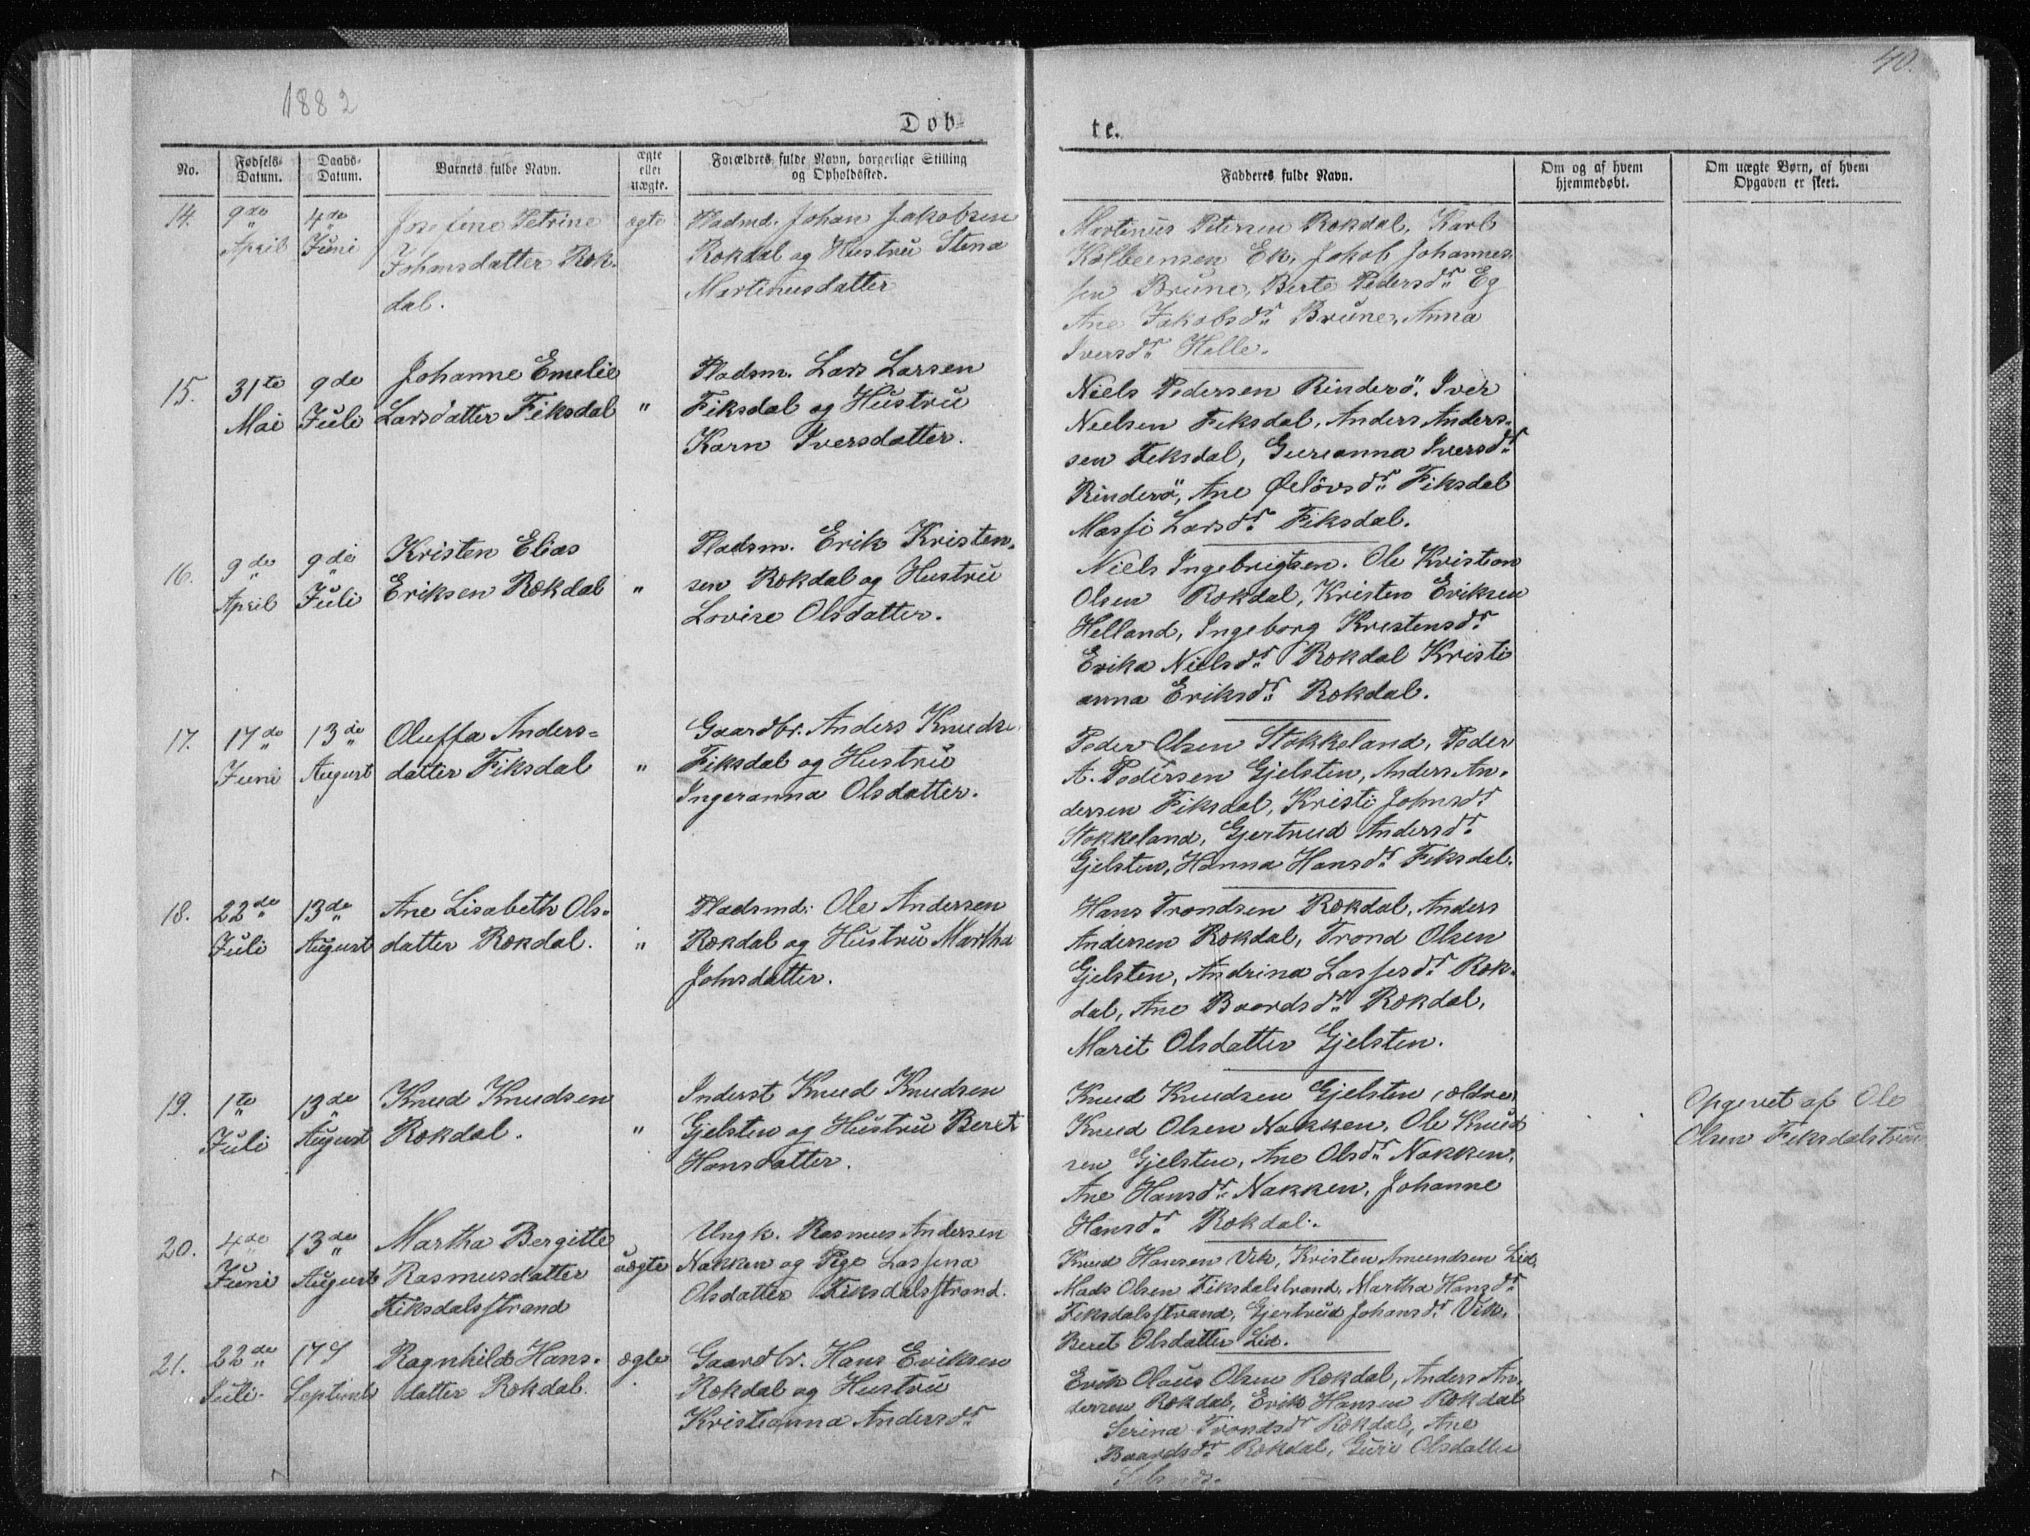 1882
40.
Døb-
te.
No.
Fødsels-
Datum.
Daabs-
Datum.
Barnets fulde Navn.
ægte
eller
uægte.
Forældres fulde Navn, borgerlige Stilling
og Opholdssted.
Fadderes fulde Navn.
Om og af hvem
hjemmedøbt.
Om uægte Børn, af hvem
Opgaven er skeet.
14.
9de
April
4de
Juni
Josefine Petrine
Johansdatter Rek-
dal.
ægte
Pladsmd. Johan Jakobsen
Rekdal og Hustru Stena
Martinusdatter
Martinus Petersen Rekdal, Karl
Kolbeensen Ek, Jakob Johannes-
sen Brune, Berte Pedersdr Eg
Ane Jakobsdr Brune, Anna
Iversdr Helle.
15.
31te
Mai
9de
Juli
Johanne Emelie
Larsdatter Fiksdal
"
Pladsm. Lars Larsen
Fiksdal og Hustru
Karn Iversdatter.
Niels Pedersen Rinderö, Iver
Nielsen Fiksdal, Anders Anders-
sen Fiksdal, Gurianna Iversdr
Rinderö, Ane Ølövsdr Fiksdal
Massi Larsdr Fiksdal.
16.
9de
April
9de
Juli
Kristen Elias
Eriksen Rekdal
"
Pladsm. Erik Kristen-
sen Rekdal og Hustru
Lovise Olsdatter.
Niels Ingebrigtsen. Ole Kristian
Olsen Rekdal, Kristen Eriksen
Helland, Ingeborg Kristensdr
Erika Nielsdr Rekdal Kristi
anna Eriksdr Rekdal.
17.
17de
Juni
13de
August
Oluffa Anders-
datter Fiksdal
"
Gaardbr. Anders Knuds.
Fiksdal og Hustru
Ingeranna Olsdatter.
Peder Olsen Stokkeland, Peder
A. Pedersen Gjelsten, Anders An-
dersen Fiksdal, Kristi Johnsdr
Stokkeland, Gjertrud Andersdr
Gjelsten, Hanna Hansdr Fiksdal.
18.
22de
Juli
13de
August
Ane Lisabeth Ols-
datter Rekdal.
"
Pladsmd. Ole Andersen
Rekdal og Hustru Martha
Johnsdatter.
Hans Trondsen Rekdal, Anders
Andersen Rekdal, Trond Olsen
Gjelsten, Andrina Lassesdr Rek-
dal, Ane Baardsdr Rekdal,
Marit Olsdatter Gjelsten.
19.
1te
Juli
13de
August
Knud Knudsen
Rekdal.
"
Inderst Knud Knudsen
Gjelsten og Hustru Beret
Hansdatter.
Knud Knudsen Gjelsten, ældre,
Knud Olsen Nakken, Ole Knud
sen Gjelsten, Ane Olsdr Nakken,
Ane Hansdr Nakken, Johanne
Hansdr Rekdal.
Opgevet af Ole
Olsen Fiksdalstran
20.
4de
Juni
13de
August
Martha Bergitte
Rasmusdatter
Fiksdalsstrand
uægte
Ungk. Rasmus Andersen
Nakken og Pige Lassina
Olsdatter Fiksdalsstrand.
Knud Hansen Vik, Kristen Amundsen Lid,
Mads Olsen Fiksdalstrand, Martha Hansdr
Fiksdalsstrand, Gjertrud Johansdr Vik,
Beret Olsdatter Lid.
21.
22de
Juli
17
Septemb
Ragnhild Hans-
datter Rekdal.
ægte
Gaardbr. Hans Eriksen
Rekdal og Hustru
Kristianna Andersdr
Erik Olaus Olsen Rekdal, Anders An-
dersen Rekdal, Erik Hansen Rekdal
Serina Trondsdr Rekdal, Ane
Baardsdr Rekdal, Guri Olsdatter